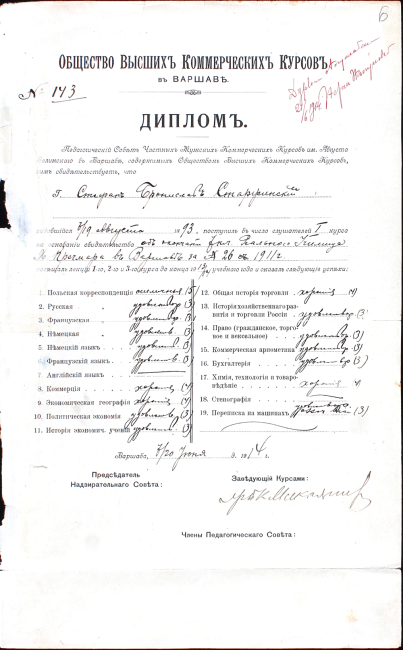 Б
Общество Высшихъ Коммерческихъ Курсовъ
въ ВАРШАВѢ.
№ 143
ДИПЛОМЪ.
Педагогическій Совѣтъ Частныхъ Мужскихъ Коммерческихъ Курсовъ им. Августа
въ Варшавѣ, содержимыхъ Обществомъ Высшихъ Коммерческихъ Курсовъ,
симъ свидѣтельствуетъ, что
г. Стефанъ Брониславъ
родившійся 7/19 Августа 1893, поступилъ въ число слушателей I курса
на основаніи свидѣтельства объ окончаніи Реальнаго Училища
въ Варшавѣ за № 26 1911 г.
1-го, 2-го и 3-го курса до конца 1913/14 учебнаго года и оказалъ слѣдующіе успѣхи:
1. Польская корреспонденція отлично (5)
2. Русская „ удовлетвор. (3)
3. Французская „ удовлетвор. (3)
4. Нѣмецкая „ удовлетв. (3)
5. Нѣмецкій языкъ удовлетв. (3)
6. Французскій языкъ удовлетв. (3)
7. Англійскій языкъ
8. Коммерція хорошо (4)
9. Экономическая географія хорошо (4)
10. Политическая экономія удовлетв. (3)
11. Исторія экономич. ученій удовлетв. (3)
12. Общая исторія торговли хорошо (4)
13. Исторія хозяйственнаго развитія и торговли Россіи удовлетвор. (3)
14. Право (гражданское, торговое и вексельное) удовлетвор. (3)
15. Коммерческая ариѳметика удовлетвор. (3)
16. Бухгалтерія удовлетвор. (3)
17. Химія, технологія и товаровѣдѣніе хорошо 4
18. Стенографія
19. Переписка на машинахъ удовлетвор. (3)
Варшава, 7/20 Іюня 1914 г.
Предсѣдатель
Надзирательнаго Совѣта:
Завѣдующій Курсами:
Члены Педагогическаго Совѣта: